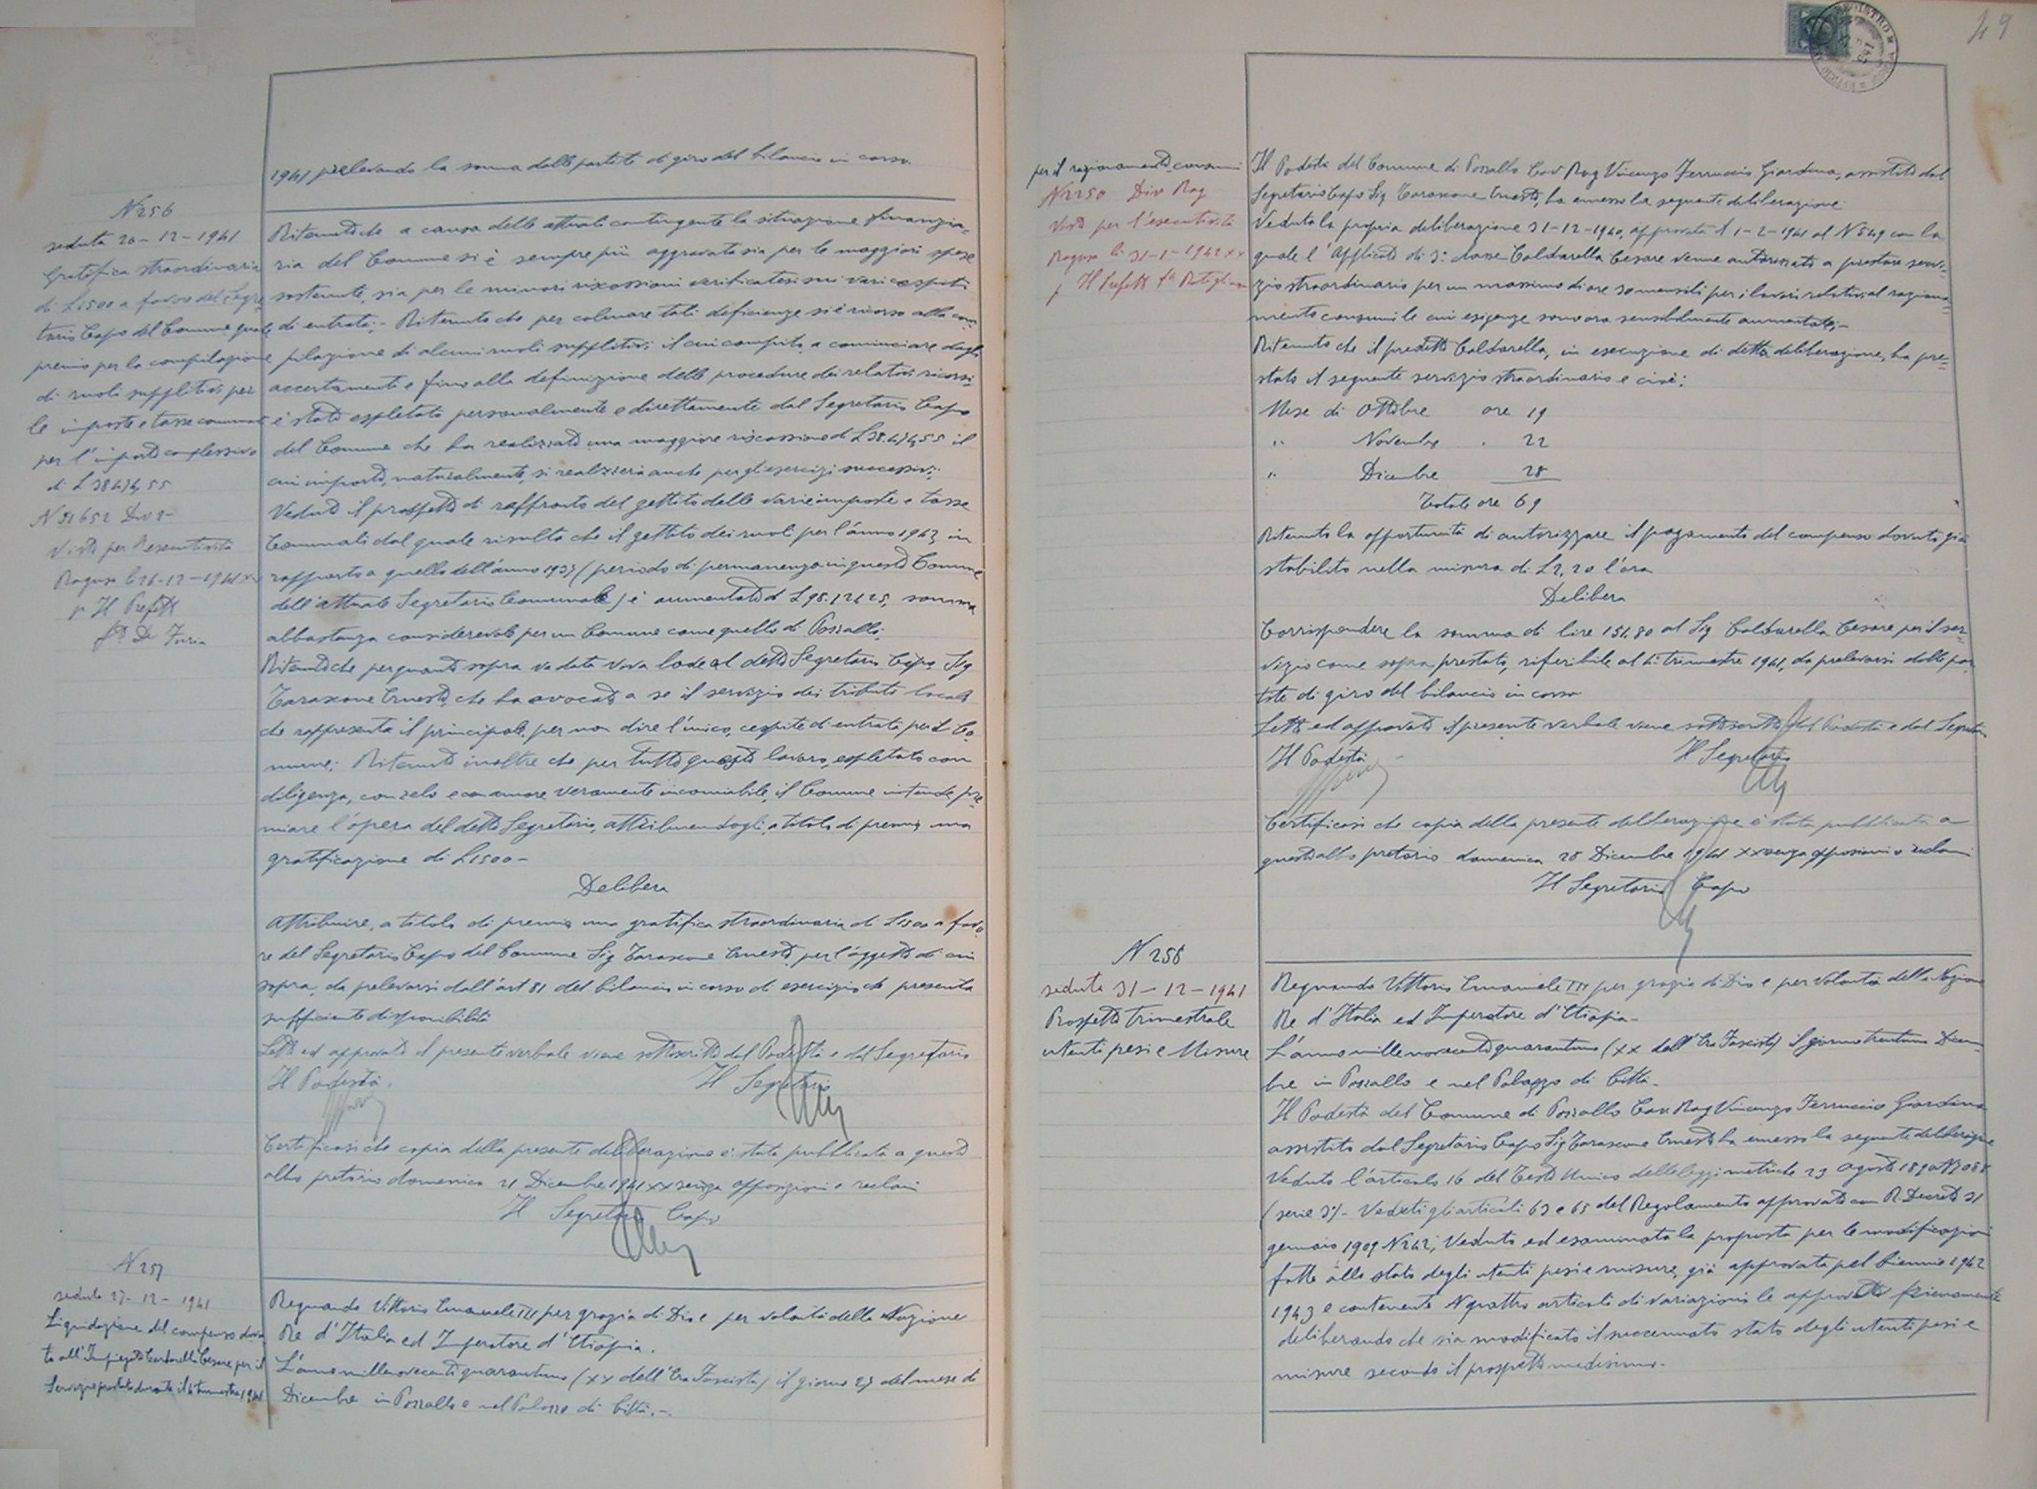 1941 prelevando la somma dalle partite di giro del bilancio in corso.
N 256
seduta 20-12-1941
Gratifica straordinaria
di L 1500 a favore del Segre
tario Capo del Comune quale
premio per la compilazione
di ruoli suppletivi per
le imposte e tasse comunali
per l'importo complessivo
di L 38474,55
N 31652 Div 2ª
Visto per l'esecutività
Ragusa li 26-12-1941 XX
p Il Prefetto
fto De Furia
Ritenuto che a causa delle attuali contingente la situazione finanzia-
ria del Comune si è sempre più aggravata sia per le maggiori spese
sostenute, sia per le minori riscossioni verificatesi sui vari cespiti
di entrata;- Ritenuto che per colmare tali deficienze si è ricorso alla com-
pilazione di alcuni ruoli suppletivi il cui compito a cominciare dagli
accertamenti e fino alla definizione delle procedure dei relativi ricorsi
è stato espletato personalmente e direttamente dal Segretario Capo
del Comune che ha realizzato una maggiore riscossione di L 38.474,55 il
cui importo, naturalmente, si realizzerà anche per gli esercizi successivi;
Veduto il prospetto di raffronto del gettito delle varie imposte e tasse
Comunali dal quale risulta che il gettito dei ruoli per l'anno 1942 in
rapporto a quello dell'anno 1937 (periodo di permanenza in questo Comune
dell'attuale Segretario Comunale) è aumentato di L 98.124,25, somma
abbastanza considerevole per un Comune come quello di Pozzallo;
Ritenuto che per quanto sopra va data viva lode al detto Segretario Capo Sig
Tarascone Ernesto, che ha avocato a se il servizio dei tributi locali
che rappresenta il principale, per non dire l'unico, cespite di entrata per il Co-
mune; Ritenuto inoltre che per tutto questo lavoro, espletato con
diligenza, con zelo e con amore veramente incomiabile, il Comune intende pre-
miare l'opera del detto Segretario, attribuendogli, a titolo di premio, una
gratificazione di L 1500-
Delibera
Attribuire, a titolo di premio una gratifica straordinaria di L 1500 a favo-
re del Segretario Capo del Comune Sig Tarascone Ernesto, per l'oggetto di cui
sopra, da prelevarsi dall'art 81 del bilancio in corso di esercizio che presenta
sufficiente disponibilità
Letto ed approvato il presente verbale viene sottoscritto dal Podestà e dal Segretario
Il Podestà. Il Segretario
Certificasi che copia della presente deliberazione è stata pubblicata a questo
albo pretorio domenica 21 Dicembre 1941 XX senza opposizioni o reclami
Il Segretario Capo
N 257
seduta 27-12-1941
Liquidazione del compenso dovu
to all'Impiegato Caldarella Cesare per il
Servizio prestato durante il 4° trimestre 1941
Regnando Vittorio Emanuele III per grazia di Dio e per volontà della Nazione
Re d'Italia ed Imperatore d'Etiopia.
L'anno millenovecentoquarantuno (XX dell'Era Fascista) il giorno 27 del mese di
Dicembre in Pozzallo e nel Palazzo di Città.-
49
per il razionamento consumi
N 2250 Div Rag
Visto per l'esecutività
Ragusa li 31-1-1942 XX
p Il Prefetto
Il Podestà del Comune di Pozzallo Cav Rag Vincenzo Ferruccio Giardina, assistito dal
Segretario Capo Sig Tarascone Ernesto, ha emesso la seguente deliberazione
Veduta la propria deliberazione 31-12-1940, approvata il 1-2-1941 al N 549 con la
quale l'Applicato di 3ª classe Caldarella Cesare venne autorizzato a prestare servi-
zio straordinario per un massimo di ore 30 mensili per i lavori relativi al raziona-
mento consumi le cui esigenze sono ora sensibilmente aumentate;-
Ritenuto che il predetto Caldarella, in esecuzione di detta deliberazione, ha pre-
stato il seguente servizio straordinario e cioè:
Mese di Ottobre ore 19
" Novembre " 22
" Dicembre 28
Totale ore 69
Ritenuto la opportunità di autorizzare il pagamento del compenso dovuto già
stabilito nella misura di L 2,20 l'ora
Delibera
Corrispondere la somma di lire 151,80 al Sig Caldarella Cesare per il ser-
vizio come sopra prestato, riferibile al 4° trimestre 1941, da prelevarsi dalle par-
tite di giro del bilancio in corso
Letto ed approvato il presente verbale viene sottoscritto dal Podestà e dal Segretario
Il Podestà Il Segretario
Certificasi che copia della presente deliberazione è stata pubblicata a
questo albo pretorio domenica 28 Dicembre 1941 XX senza opposizioni o reclami
Il Segretario Capo
N 258
seduta 31-12-1941
Prospetto trimestrale
utenti pesi e Misure
Regnando Vittorio Emanuele III per grazia di Dio e per volontà della Nazione
Re d'Italia ed Imperatore d'Etiopia-
L'anno millenovecentoquarantuno (XX dell'Era Fascista) il giorno trentuno Dicem-
bre in Pozzallo e nel Palazzo di Città-
Il Podestà del Comune di Pozzallo Cav Rag Vincenzo Ferruccio Giardina
assistito dal Segretario Capo Sig Tarascone Ernesto ha emesso la seguente deliberazione
Veduto l'articolo 16 del Testo Unico delle leggi metriche 23 Agosto 1890 N 7088
(serie 3ª)- Veduti gli articoli 63 e 65 del Regolamento approvato con R. Decreto 31
gennaio 1909 N 242; Veduto ed esaminato la proposta per le modificazioni
fatte allo stato degli utenti pesi e misure, già approvata pel biennio 1942
1943 e contenente N quattro articoli di variazioni le approva pienamente
deliberando che sia modificato il succennato stato degli utenti pesi e
misure secondo il prospetto medesimo.-